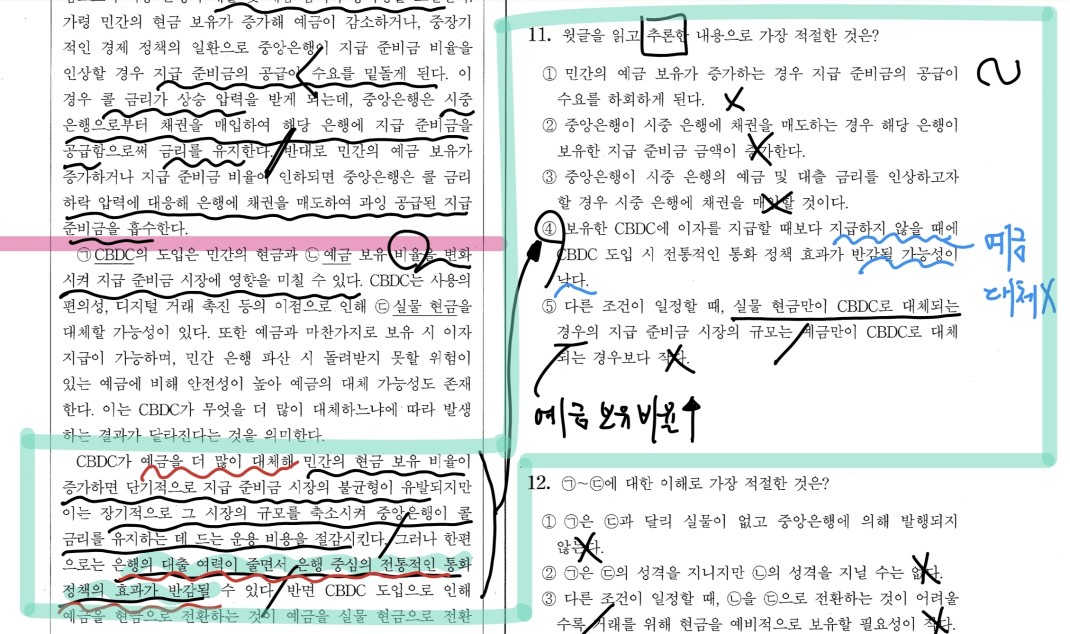 가령 민간의 현금 보유가 증가해 예금이 감소하거나, 중장기
적인 경제 정책의 일환으로 중앙은행이 지급 준비금 비율을
인상할 경우 지급 준비금의 공급이 수요를 밑돌게 된다. 이
경우 콜 금리가 상승 압력을 받게 되는데, 중앙은행은 시중
은행으로부터 채권을 매입하여 해당 은행에 지급 준비금을
공급함으로써 금리를 유지한다. 반대로 민간의 예금 보유가
증가하거나 지급 준비금 비율이 인하되면 중앙은행은 콜 금리
하락 압력에 대응해 은행에 채권을 매도하여 과잉 공급된 지급
준비금을 흡수한다.
㉠ CBDC의 도입은 민간의 현금과 ㉡ 예금 보유 비율을 변화
시켜 지급 준비금 시장에 영향을 미칠 수 있다. CBDC는 사용의
편의성, 디지털 거래 촉진 등의 이점으로 인해 ㉢ 실물 현금을
대체할 가능성이 있다. 또한 예금과 마찬가지로 보유 시 이자
지급이 가능하며, 민간 은행 파산 시 돌려받지 못할 위험이
있는 예금에 비해 안전성이 높아 예금의 대체 가능성도 존재
한다. 이는 CBDC가 무엇을 더 많이 대체하느냐에 따라 발생
하는 결과가 달라진다는 것을 의미한다.
CBDC가 예금을 더 많이 대체해 민간의 현금 보유 비율이
증가하면 단기적으로 지급 준비금 시장의 불균형이 유발되지만
이는 장기적으로 그 시장의 규모를 축소시켜 중앙은행이 콜
금리를 유지하는 데 드는 운용 비용을 절감시킨다. 그러나 한편
으로는 은행의 대출 여력이 줄면서 은행 중심의 전통적인 통화
정책의 효과가 반감될 수 있다. 반면 CBDC 도입으로 인해
예금을 현금으로 전환하는 것이 예금을 실물 현금으로 전환
11. 윗글을 읽고 추론한 내용으로 가장 적절한 것은?
① 민간의 예금 보유가 증가하는 경우 지급 준비금의 공급이
수요를 하회하게 된다.
② 중앙은행이 시중 은행에 채권을 매도하는 경우 해당 은행이
보유한 지급 준비금 금액이 증가한다.
③ 중앙은행이 시중 은행의 예금 및 대출 금리를 인상하고자
할 경우 시중 은행에 채권을 매입할 것이다.
④ 보유한 CBDC에 이자를 지급할 때보다 지급하지 않을 때에
CBDC 도입 시 전통적인 통화 정책 효과가 반감될 가능성이
낮다.
예금
대체 X
⑤ 다른 조건이 일정할 때, 실물 현금만이 CBDC로 대체되는
경우의 지급 준비금 시장의 규모는 예금만이 CBDC로 대체
되는 경우보다 작다.
예금 보유 비율 ↑
12. ㉠~㉢에 대한 이해로 가장 적절한 것은?
① ㉠은 ㉢과 달리 실물이 없고 중앙은행에 의해 발행되지
않는다.
② ㉠은 ㉢의 성격을 지니지만 ㉡의 성격을 지닐 수는 없다.
③ 다른 조건이 일정할 때, ㉡을 ㉢으로 전환하는 것이 어려울
수록 거래를 위해 현금을 예비적으로 보유할 필요성이 작다.